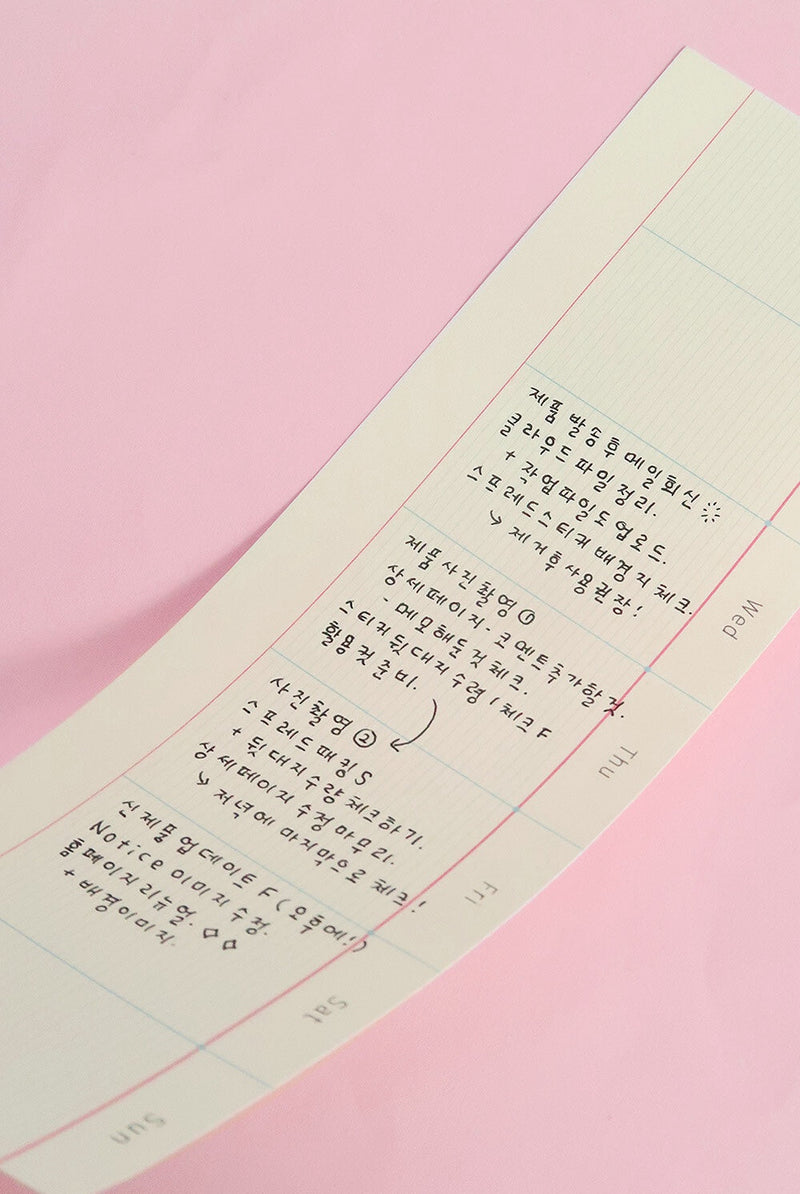 제품 발송후 메일회신
클라우드 파일 정리.
+ 작업파일도 업로드.
스프레드스티커 배경지 체크.
↳ 제거후 사용권장!
Wed
제품사진촬영 ①
상세페이지 - 코멘트추가할 것.
- 메모해둔것 체크.
스티커 뒷대지수령 / 체크 F
활용컷 준비.
Thu
사진촬영 ②
스프레드 패킹 S
+ 뒷대지 수량 체크하기.
상세페이지 수정 마무리.
↳ 저녁에 마지막으로 체크!
Fri
신제품 업데이트 F (오후에!)
Notice 이미지 수정.
홈페이지 리뉴얼. ◇◇
+ 배경이미지.
Sat
Sun